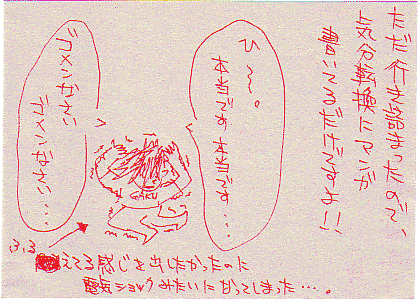 ただ行き詰まったので、
気分転換にマンガ
書いてるだけですよ!!
ひ〜。
本当です本当です…
ゴメンなさい
ゴメンなさい…
GAKU
ふる
えてる感じを出したかったのに
電気ショックみたいになってしまった…。